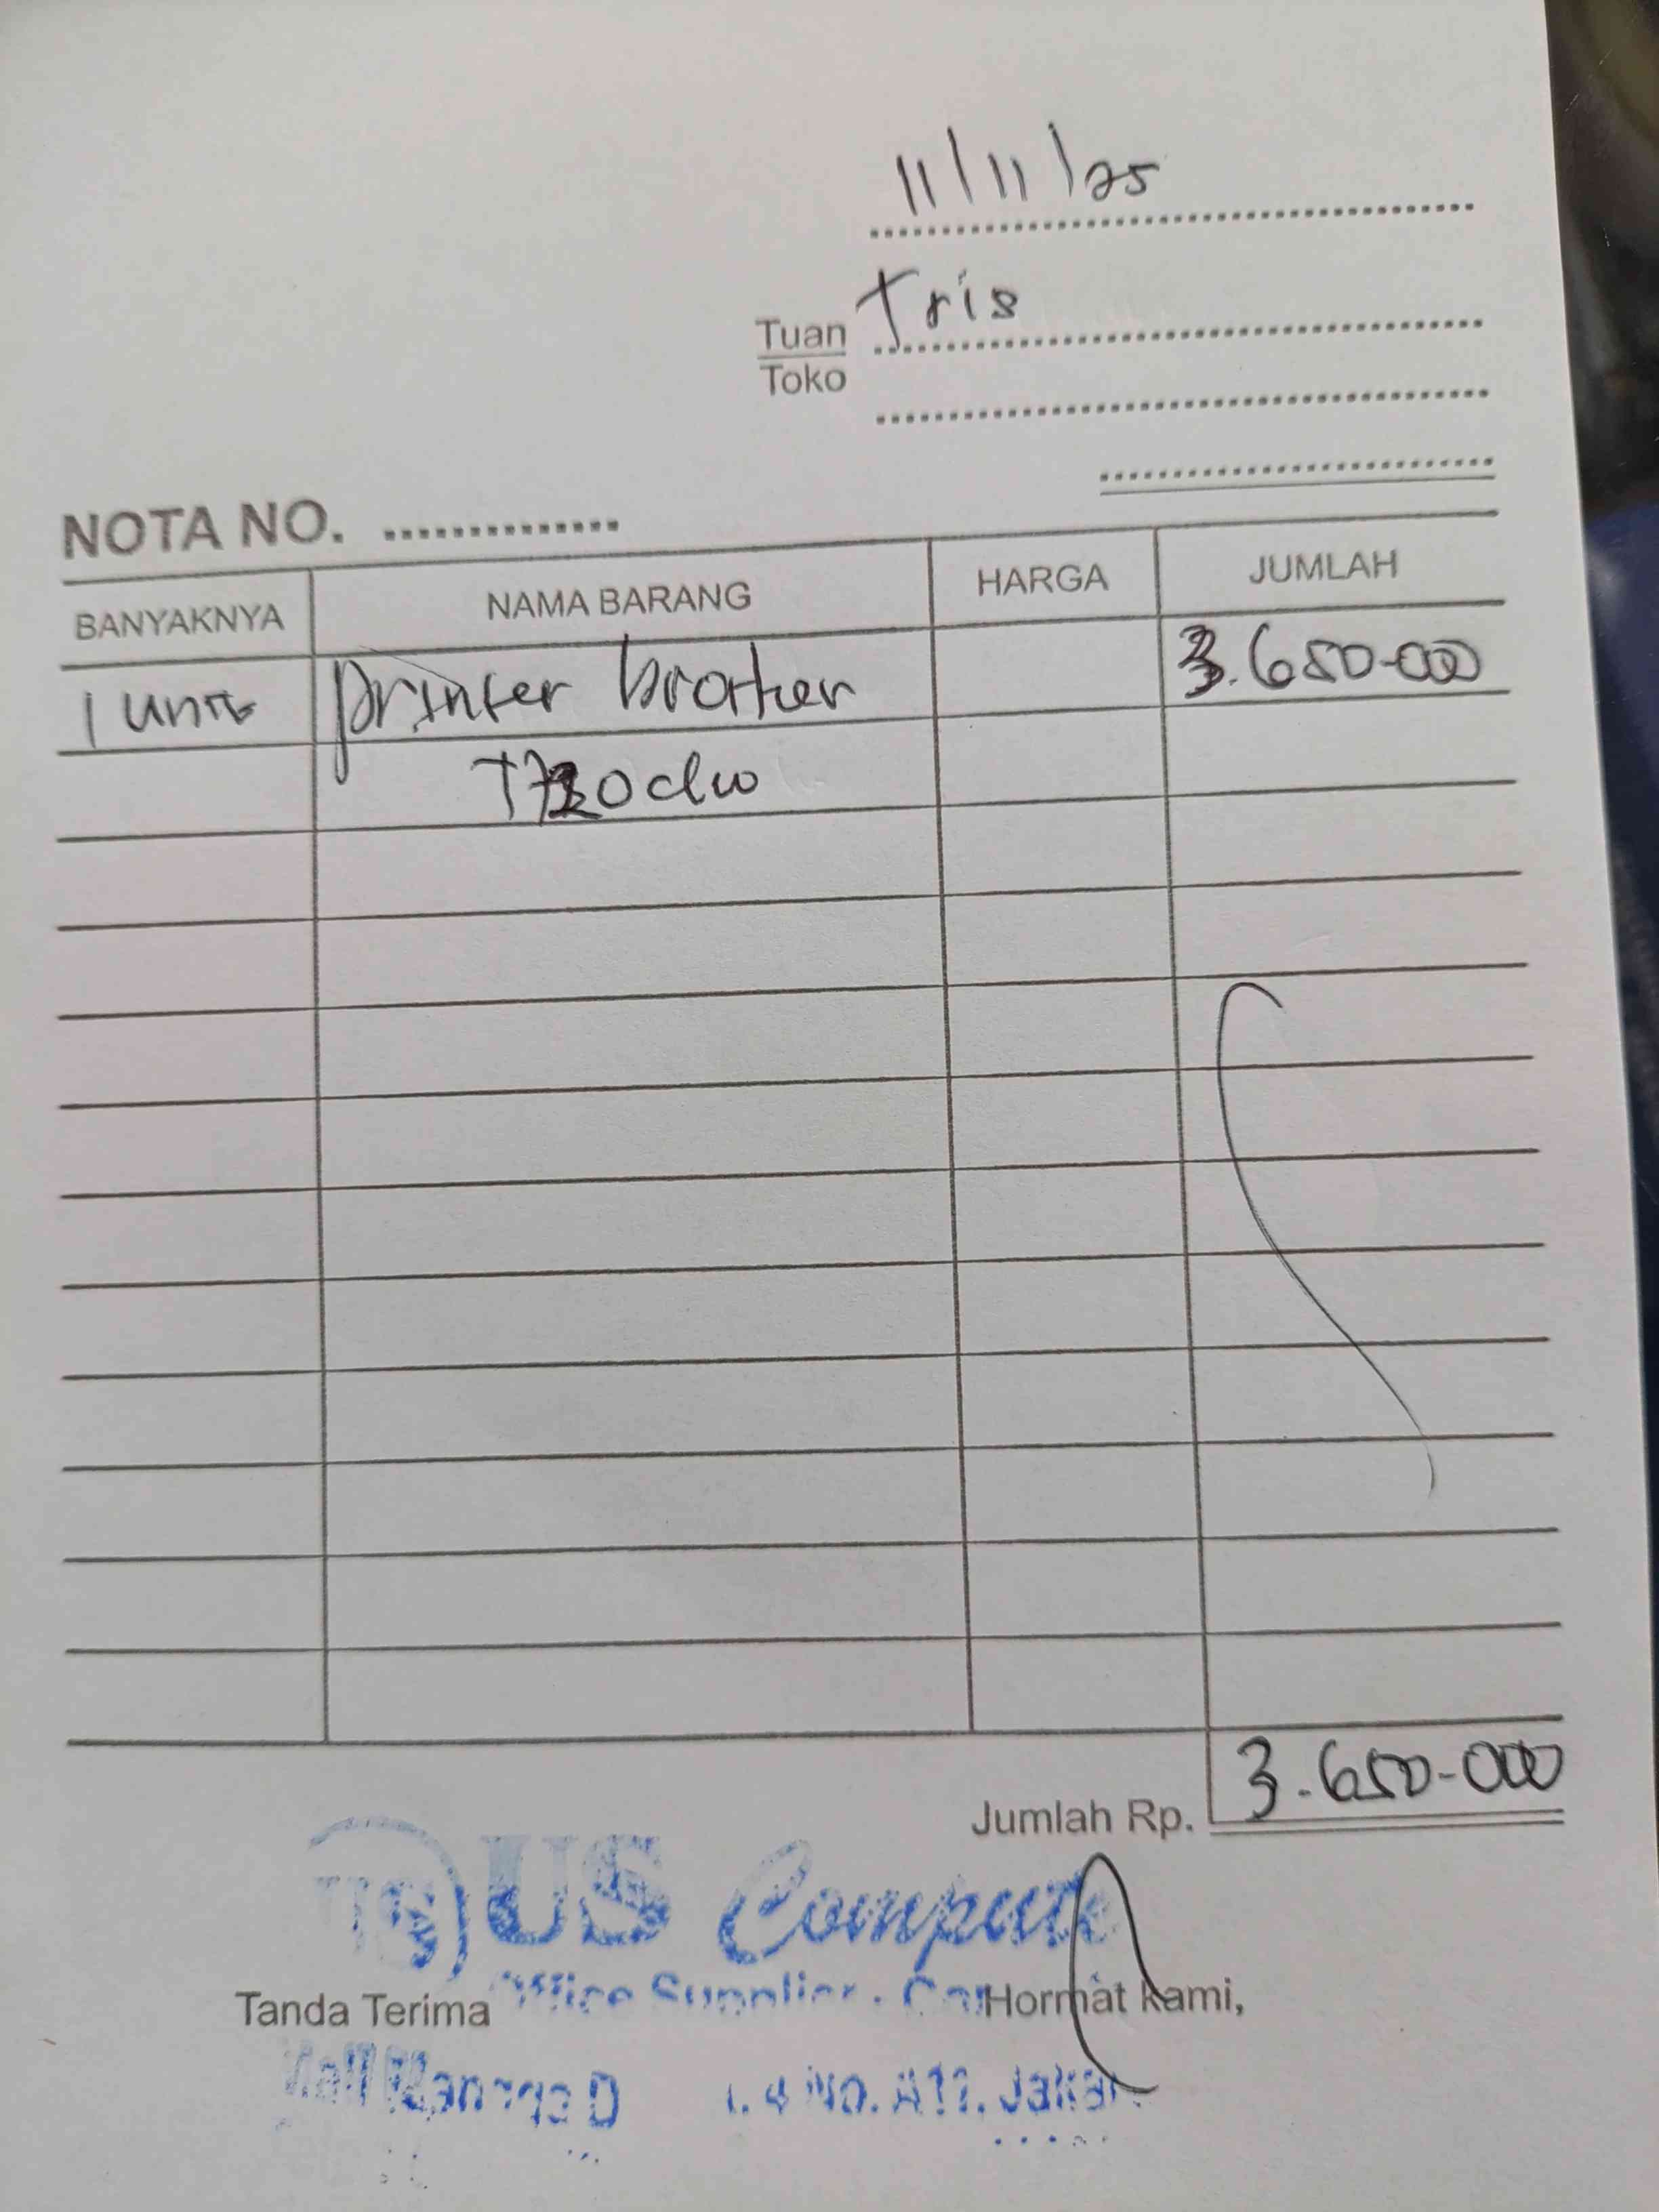 11/11/25
Tuan Tris
Toko
NOTA NO. ..............
BANYAKNYA NAMA BARANG HARGA JUMLAH
1 unit printer brother 3.650-000
T720dw
Jumlah Rp. 3.650-000
US Compute
Office Supplier .
Tanda Terima Hormat kami,
Mall Mangga D No. Jakar